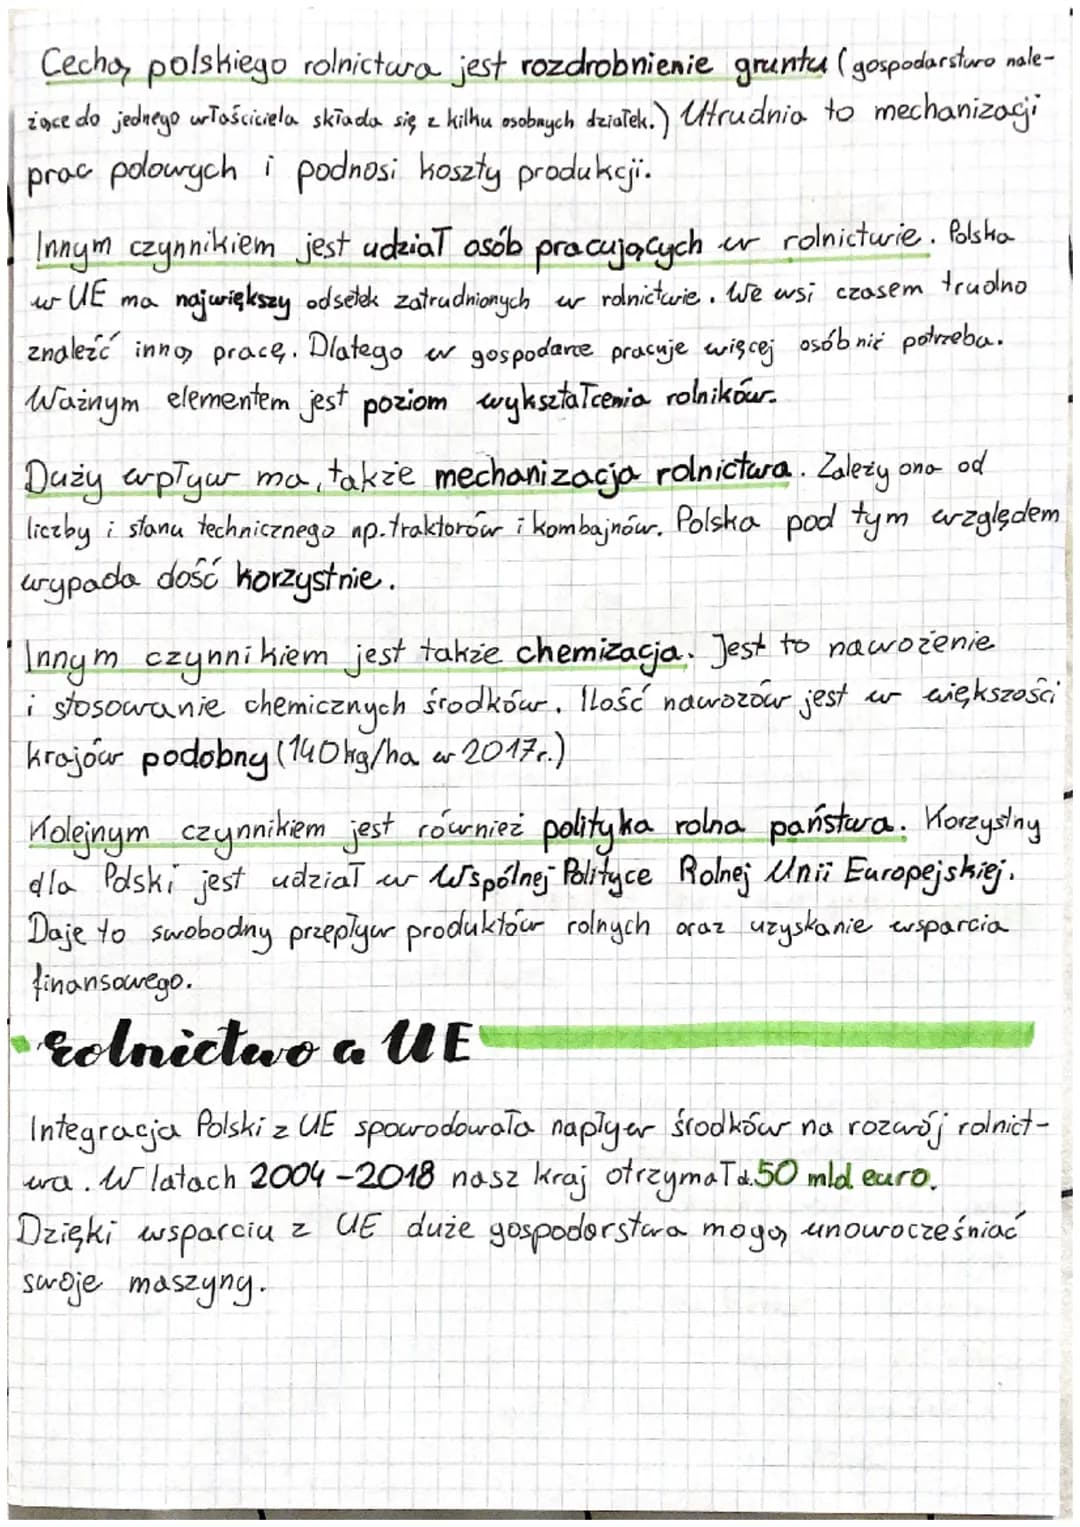 Cechą polskiego rolnictwa jest rozdrobnienie gruntu (gospodarstwo nale-
żące do jednego właściciela składa się z kilku osobnych działek.) Utrudnia to mechanizacji
prac polowych i podnosi koszty produkcji.
Innym czynnikiem jest udział osób pracujących w rolnictwie. Polska
w UE ma największy odsetek zatrudnionych w rolnictwie. We wsi czasem trudno
znaleźć inną pracę. Dlatego w gospodarce pracuje więcej osób niż potrzeba.
Ważnym elementem jest poziom wykształcenia rolników.
Duży wpływ ma także mechanizacja rolnictwa. Zależy ona od
liczby i stanu technicznego np. traktorów i kombajnów. Polska pod tym względem
wypada dość korzystnie.
Innym czynnikiem jest także chemizacja. Jest to nawożenie
i stosowanie chemicznych środków. Ilość nawozów jest w większości
krajów podobny (140 kg/ha w 2017r.)
Kolejnym czynnikiem jest również polityka rolna państwa. Korzystny
dla Polski jest udział w Wspólnej Polityce Rolnej Unii Europejskiej.
Daje to swobodny przepływ produktów rolnych oraz uzyskanie wsparcia
finansowego.
Rolnictwo a UE
Integracja Polski z UE spowodowała napływ środków na rozwój rolnict-
wa. W latach 2004-2018 nasz kraj otrzymał 50 mld euro.
Dzięki wsparciu z UE duże gospodarstwa mogą unowocześniać
swoje maszyny.